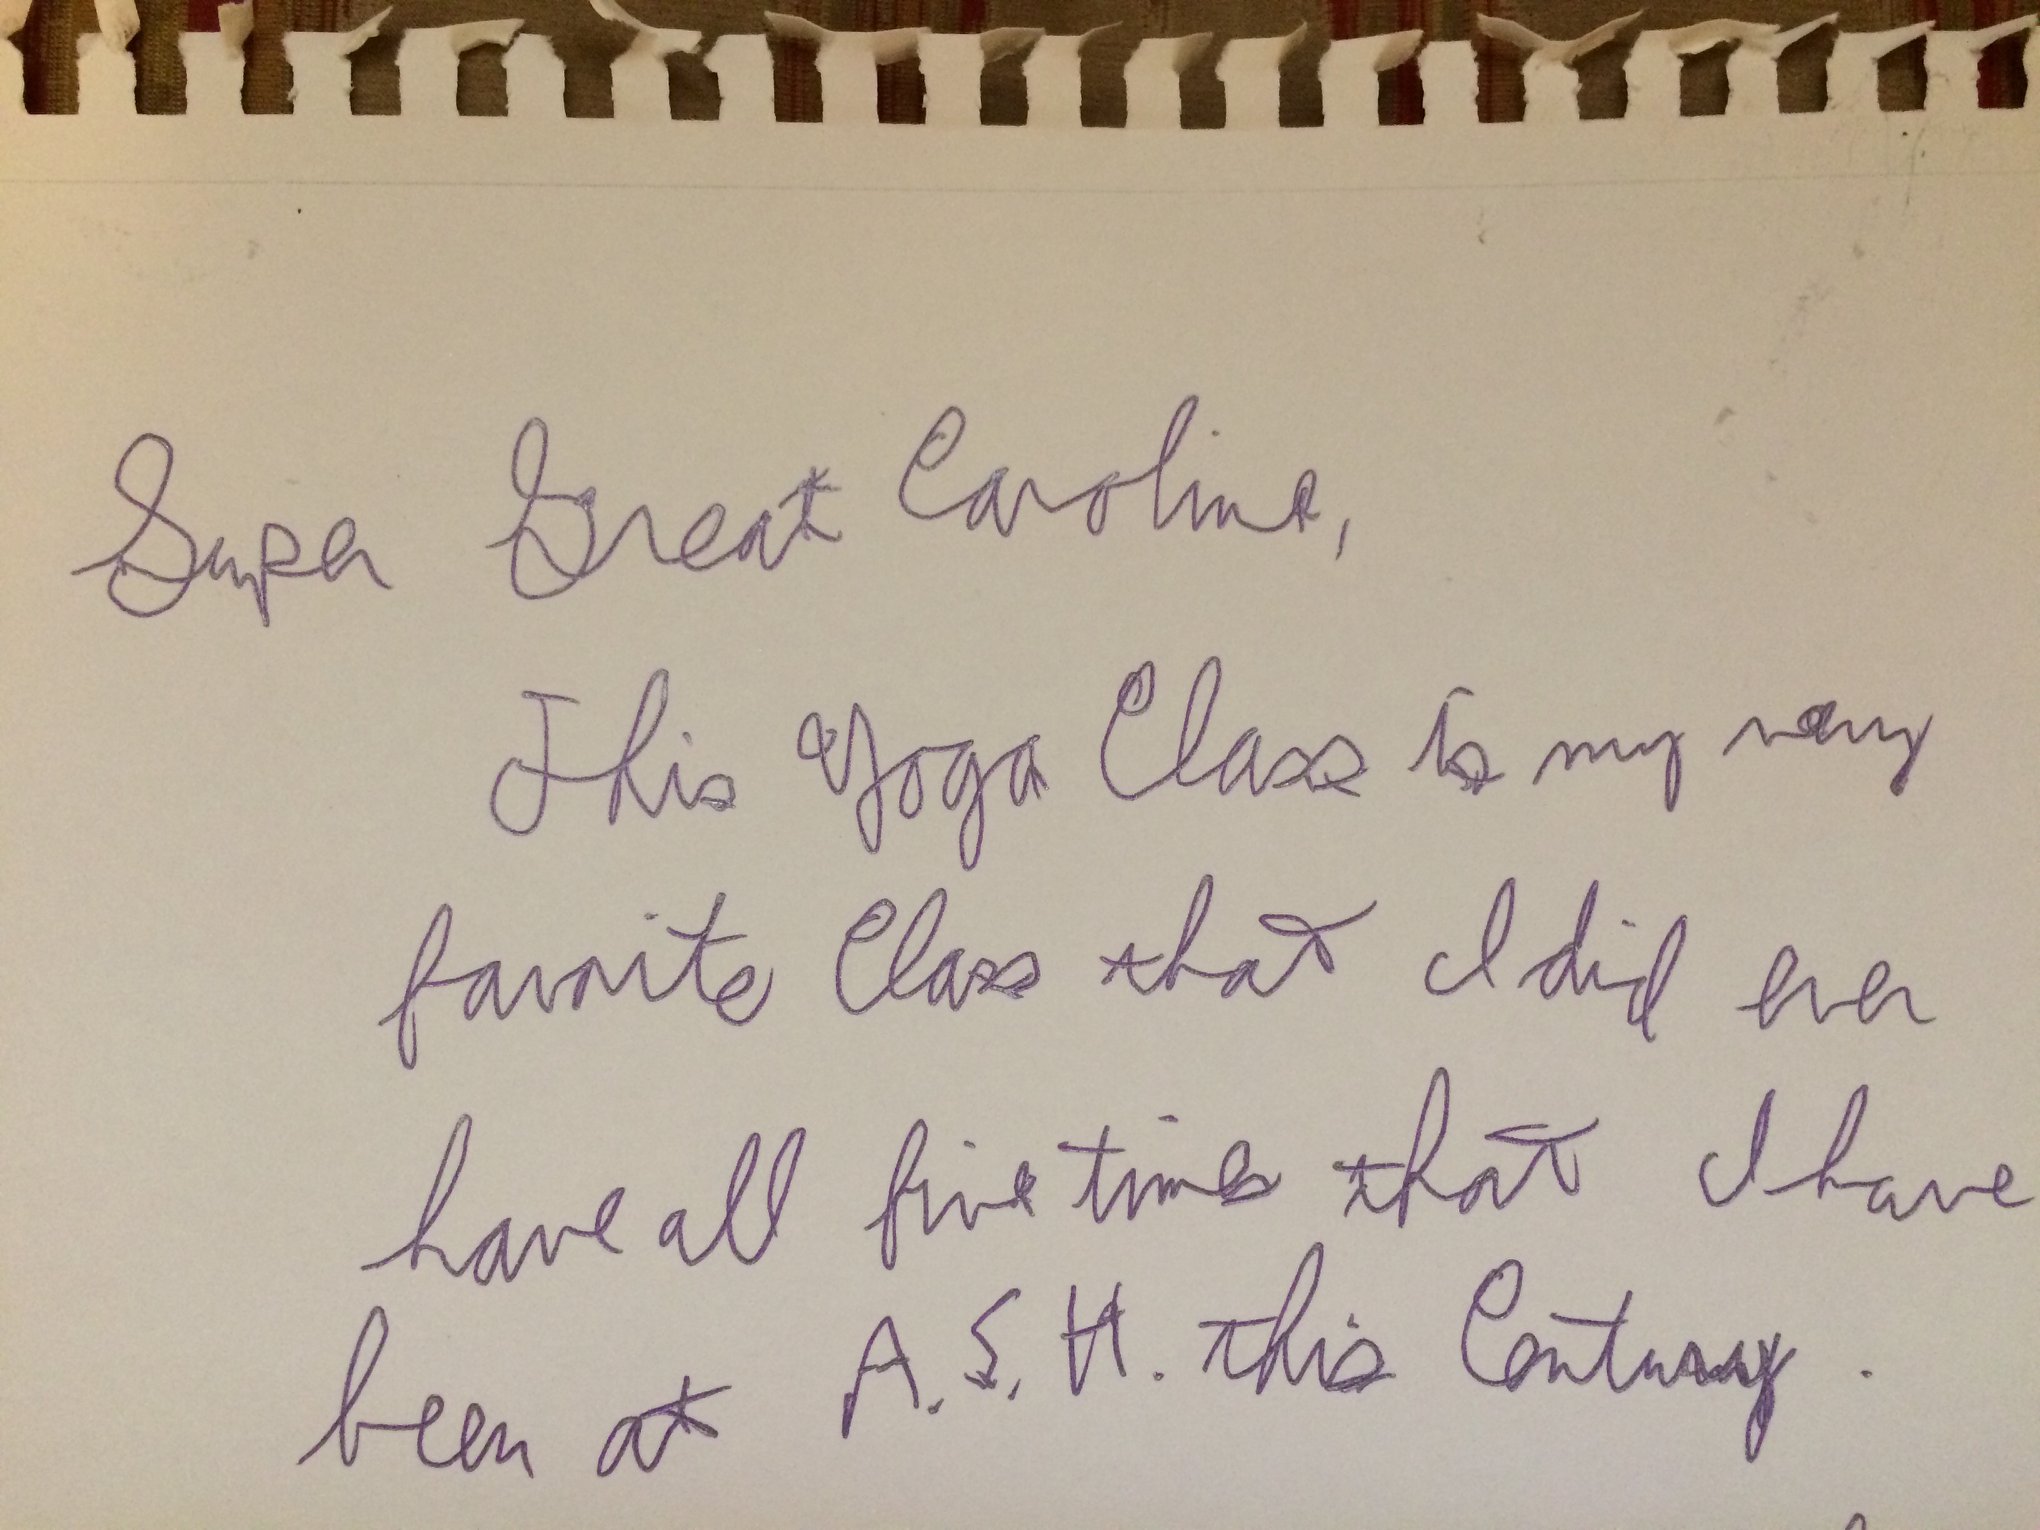 Super Great Caroline,
This Yoga Class is my very
favorite Class that I did ever
have all five times that I have
been at A.S.H. this Century.